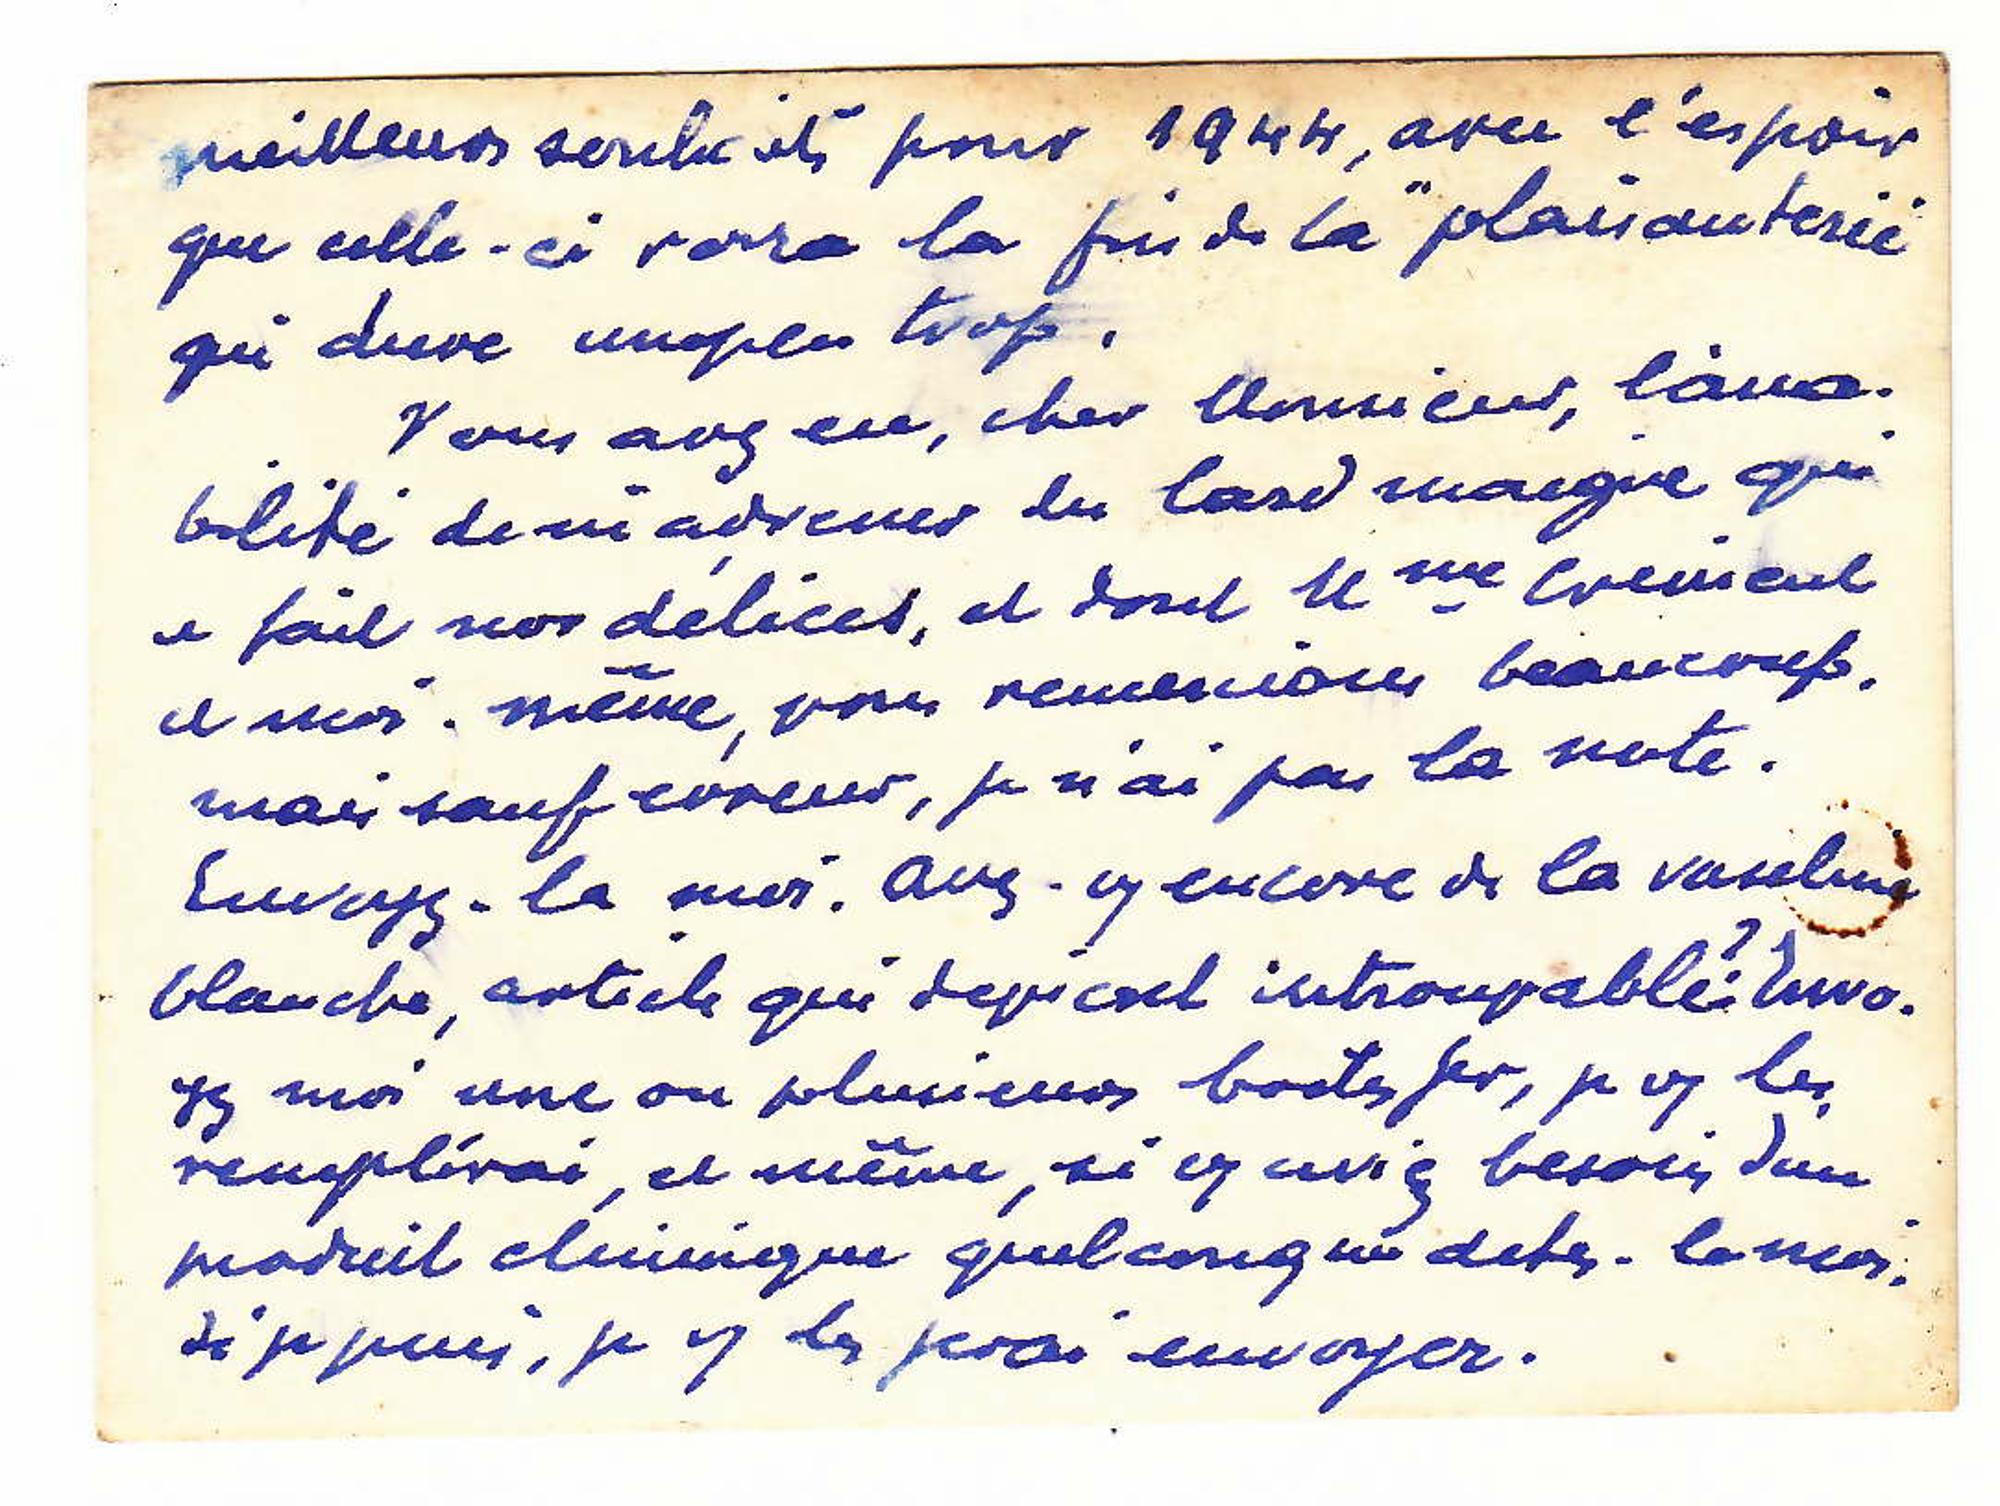 meilleurs souhaits pour 1944, avec l'espoir
que celle-ci verra la fin de la "plaisanterie"
qui dure un peu trop.
Vous avez eu, cher Monsieur, l'ama-
bilité de m'adresser du lard maigre qui
a fait nos délices, et dont Mme
et moi-même, vous remercions beaucoup.
mais sauf erreur, je n'ai pas la note.
Envoyez-la moi. Avez-vs encore de la vaseline
blanche, article qui devient introuvable? Envo-
yez moi une ou plusieurs boites fer, je vs les
remplirai, et même, si vs aviez besoin d'un
produit chimique quelconque dites-le moi.
Si je puis, je vs les ferai envoyer.